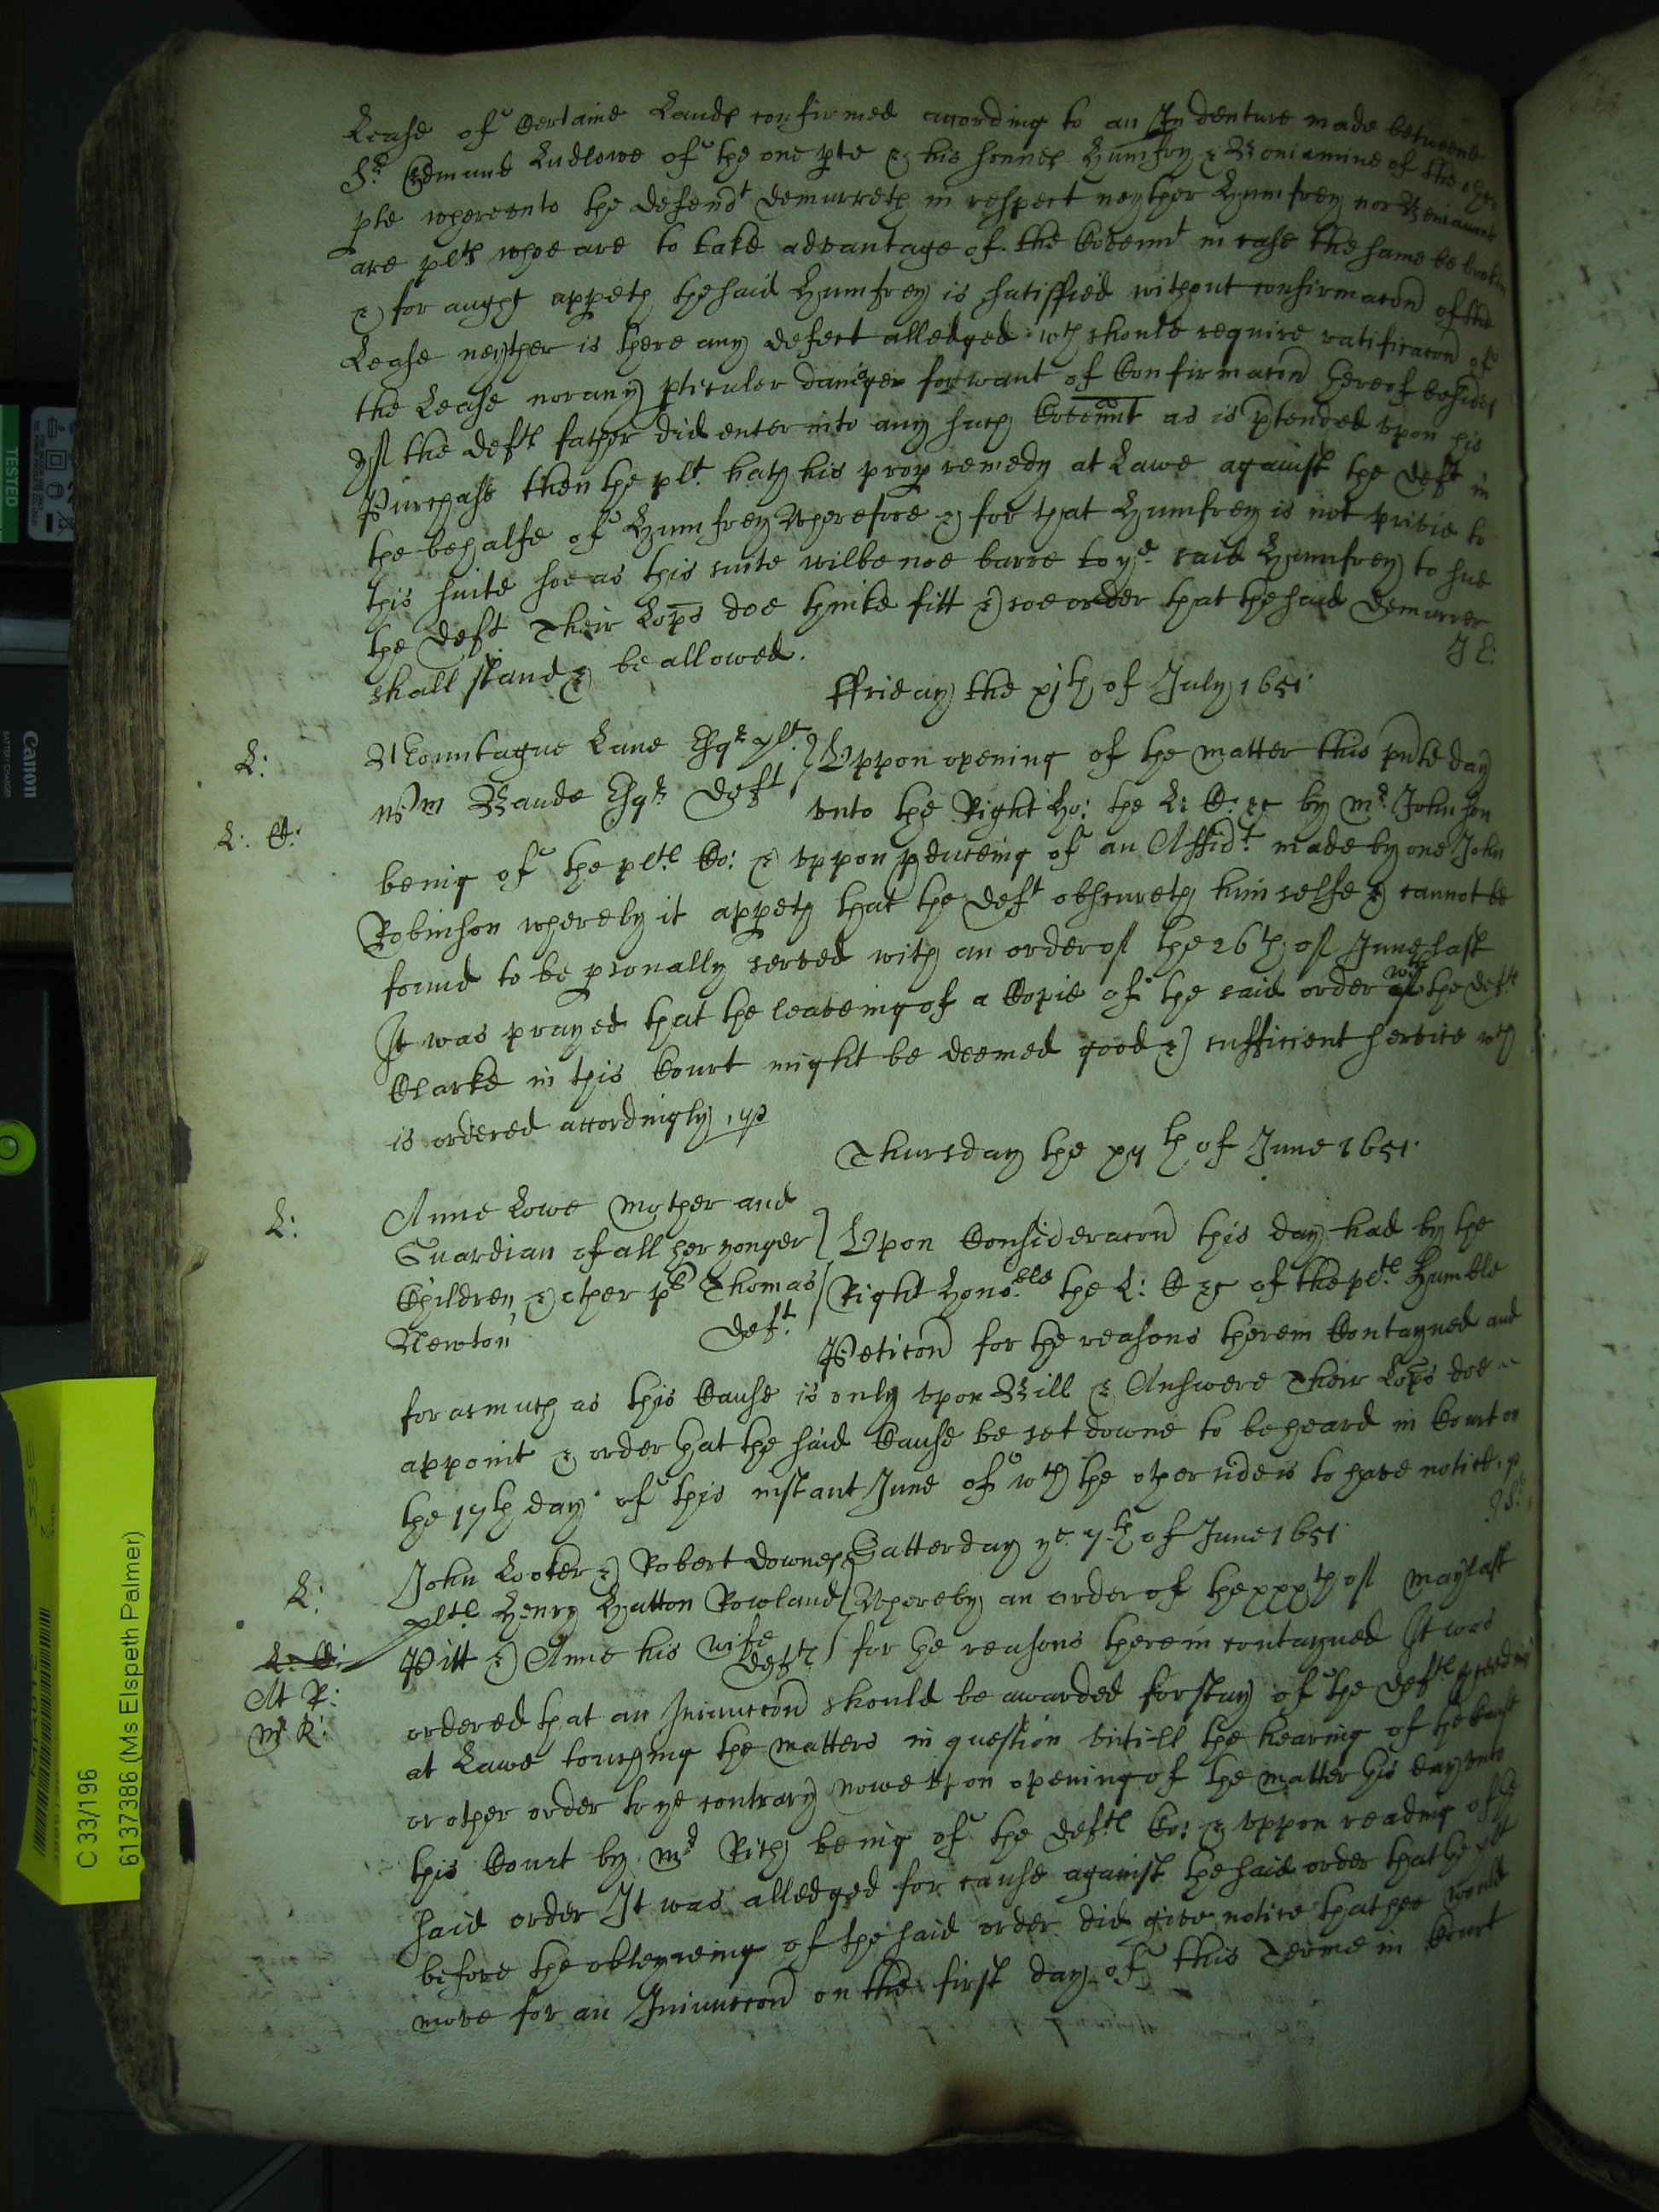 Lease of Certaine Lands confirmed acording to an Indenture made betweene
Sr. Edmund Ludlowe of the one pte & his sonnes Humfry & Beniamine of the other
pte whereunto the defendt demurreth in respect neyther Humfrey nor Beniamine
are plts whoe are to take advantage of the Covennt in case the same be broken
& for aught appeth the said Humfrey is satisffied without confirmacon of the
Lease neyther is there any defect alledged wch should require ratificacon of
the Lease nor any pticuler danger for want of Confirmacon hereof besides
yf the defts father did enter into any such Covennt as is ptended upon his
Purchase then the plt. hath his prop remedy at Lawe against the deft in
the behalfe of Humfrey Wherefore & for that Humfrey is not privie to
this suite soe as this suite wilbe noe barre to ye. said Humfrey to sue
the deft. Their Lopps doe thinke fitt & soe order that the said demurrer
shall stand & be allowed.
J L:
ffriday the xjth of July 1651.
L:
Mountague Lane Esqr plt.
Wm Bande Esqr deft
Uppon opening of the matter this pnte day
L: C:
unto the Right Ho: the L: C: &c by mr. Johnson
being of the plts. Co: & uppon pduceing of an Affidt. made by one John
Robinson whereby it appeth that the deft obscureth himselfe & cannot be
found to be psonally served with an order of the 26th of June last
It was prayed that the leaveing of a Copie of the said order with the defts
Clarke in this Court might be deemed good & sufficient service wch
is ordered accordingly,
Thursday the xijth of June 1651.
L:
Anne Lowe Mother and
Guardian of all her yonger
Children & other pts Thomas
Newton deft.
Upon Consideracon this day had by the
Right Honoble the L: C &c of the plts. Humble
Peticon for the reasons therein Contayned and
for asmuch as this Cause is only upon Bill & Answere Their Lopps doe
appoint & order that the said Cause be set downe to be heard in Court on
the 17th day of this instant June of wch the other side is to have notice.
Satterday ye. 7th of June 1651.
L:
John Looker & Robert Downes
plts Henry Hatton Rowland
Pitt & Anne his wife
defts
Whereby an order of the xxxth of May last
for the reasons therein contayned It was
L: C:
At R:
Mr R:
ordered that an Iniunccon should be awarded for stay of the defts pceedings
at Lawe touching the matters in question untill the hearing of the Cause
or other order to ye contrary Nowe upon opening of the matter this day unto
this Court by mr Rich being of the defts Co: & uppon reading of the
said order It was alledged for cause against the said order that the plt
before the obteyneing of the said order did give notice that hee would
move for an Iniunccon on the first day of this Terme in Court
TESTED
Canon
BATTERY CHARGER
C 33/196
6137386 (Ms Elspeth Palmer)